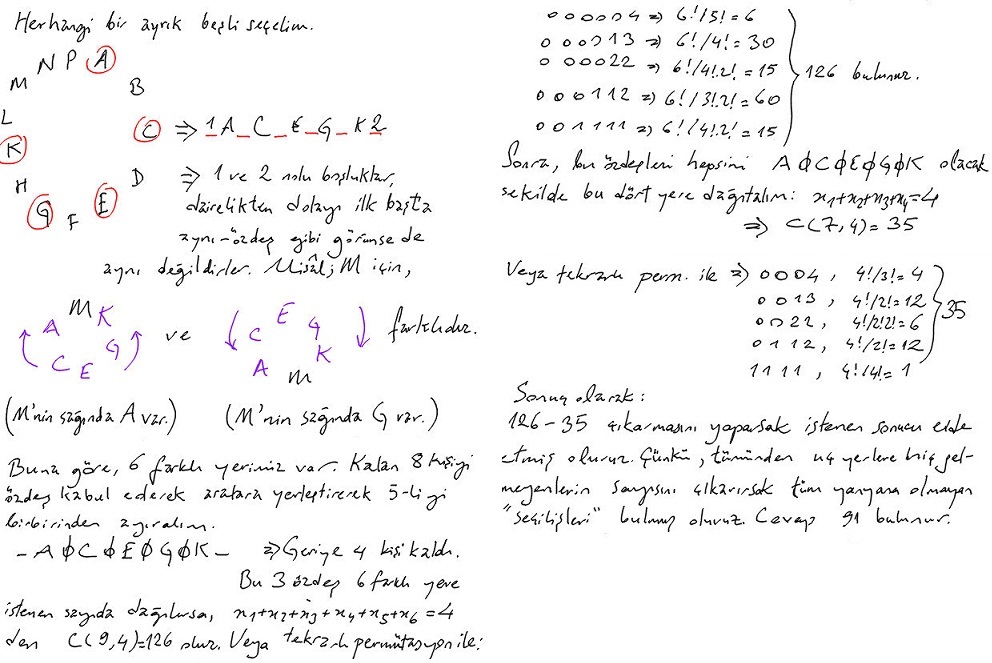 Herhangi bir ayrık beşli seçelim.
N P A
M B
L C ⇒ 1A_C_E_G_K2
K
H D ⇒ 1 ve 2 nolu boşluklar,
G F E dairelikten dolayı ilk başta
aynı-özdeş gibi görünse de
aynı değildirler. Misâl; M için,
M K
A G
C E
ve
E
C G
A K
M
farklıdır.
(M'nin sağında A var.) (M'nin sağında G var.)
Buna göre, 6 farklı yerimiz var. Kalan 8 kişiyi
özdeş kabul ederek aralara yerleştirerek 5-liyi
birbirinden ayıralım.
- A ϕ C ϕ E ϕ G ϕ K - ⇒ Geriye 4 kişi kaldı.
Bu 3 özdeş 6 farklı yere
istenen sayıda dağılırsa, x1+x2+x3+x4+x5+x6=4
den C(9,4)=126 olur. Veya tekrarlı permütasyon ile:
0 0 0 0 0 4 ⇒ 6!/5! = 6
0 0 0 0 1 3 ⇒ 6!/4! = 30
0 0 0 0 2 2 ⇒ 6!/4!.2! = 15
0 0 0 1 1 2 ⇒ 6!/3!.2! = 60
0 0 1 1 1 1 ⇒ 6!/4!.2! = 15
126 bulunur.
Sonra, bu özdeşleri hepsini A ϕ C ϕ E ϕ G ϕ K olacak
şekilde bu dört yere dağıtalım: x1+x2+x3+x4=4
⇒ C(7,4)=35
Veya tekrarlı perm. ile ⇒ 0 0 0 4 , 4!/3! = 4
0 0 1 3 , 4!/2! = 12
0 0 2 2 , 4!/2!2! = 6
0 1 1 2 , 4!/2! = 12
1 1 1 1 , 4!/4! = 1
35
Sonuç olarak:
126-35 çıkarmasını yaparsak istenen sonucu elde
etmiş oluruz. Çünkü, tümünden uç yerlere hiç gel-
meyenlerin sayısını çıkarırsak tüm yanyana olmayan
"seçilişleri" bulmuş oluruz. Cevap 91 bulunur.